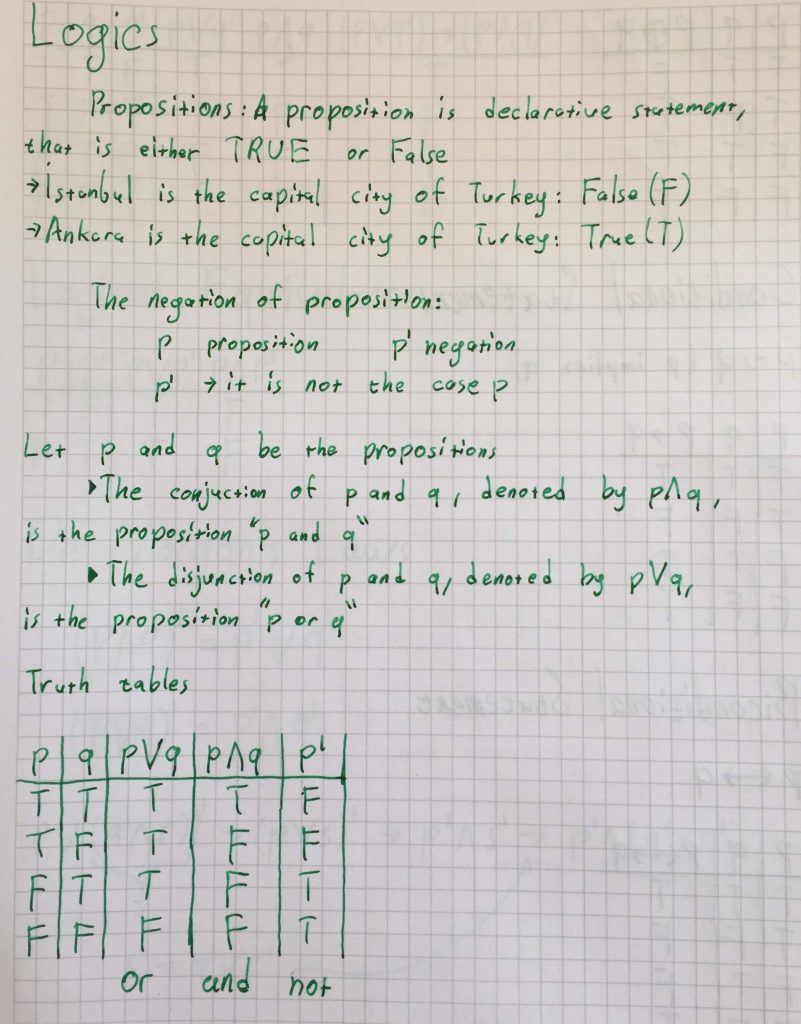 Logics
Propositions: A proposition is declarative statement,
that is either TRUE or False
→İstanbul is the capital city of Turkey: False (F)
→Ankara is the capital city of Turkey: True (T)
The negation of proposition:
p proposition p' negation
p' → it is not the case p
Let p and q be the propositions
▶The conjuction of p and q, denoted by p∧q,
is the proposition "p and q"
▶The disjunction of p and q, denoted by p∨q,
is the proposition "p or q"
Truth tables
p q p∨q p∧q p'
T T T T F
T F T F F
F T T F T
F F F F T
or and not